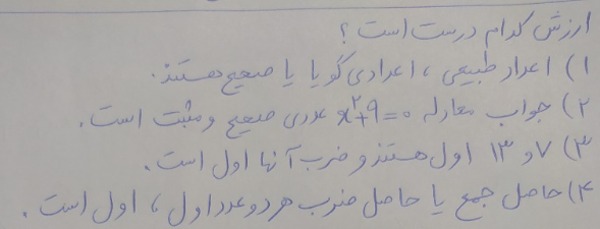 ارزش کدام درست است؟
۱) اعداد طبیعی، اعدادی گویا یا صحیح هستند.
۲) جواب معادله x²+9=0 عددی صحیح و مثبت است.
۳) ۷ و ۱۳ اول هستند و ضرب آنها اول است.
۴) حاصل جمع یا حاصل ضرب هر دو عدد اول، اول است.